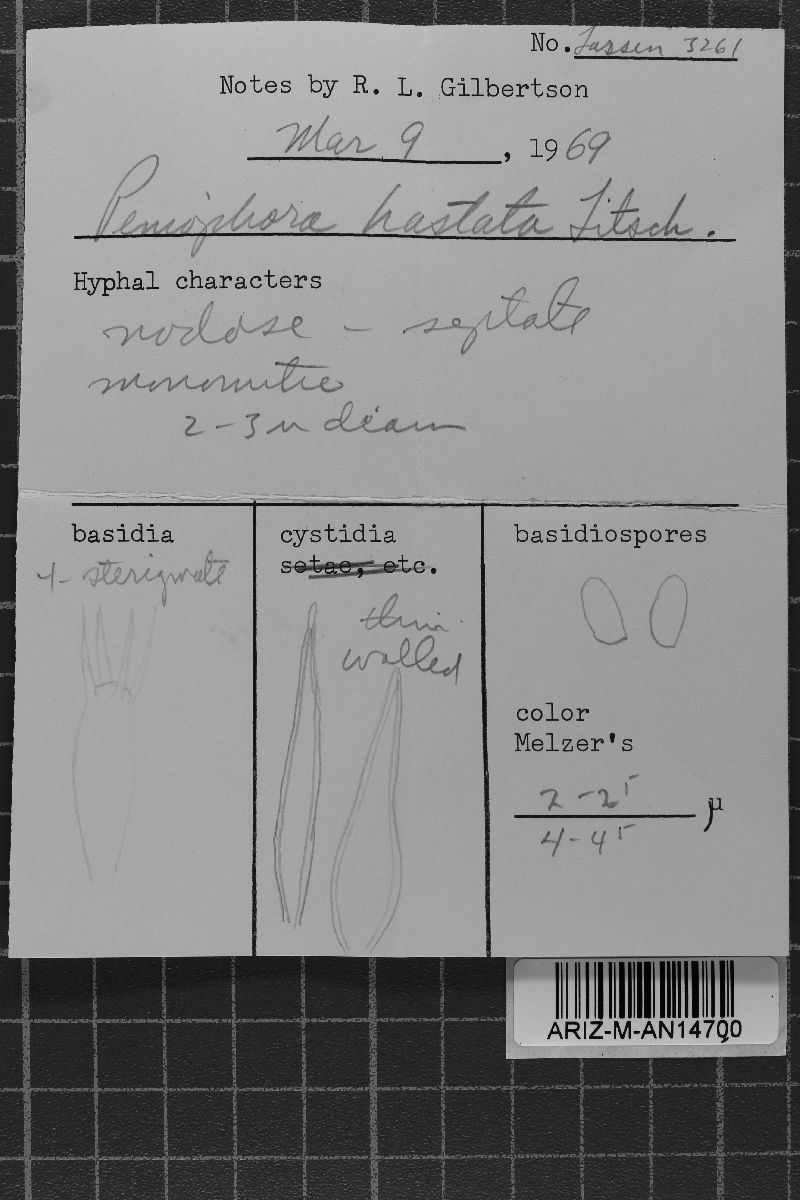 No. Larsen 3261
Notes by R. L. Gilbertson
Mar 9, 1969
Peniophora hastata Litsch.
Hyphal characters
nodose - septate
monomitic
2-3 µ diam
basidia
4- sterigmate
cystidia
setae, etc.
thin
walled
basidiospores
color
Melzer's
2-2⁵
4-4⁵ µ
ARIZ-M-AN14700